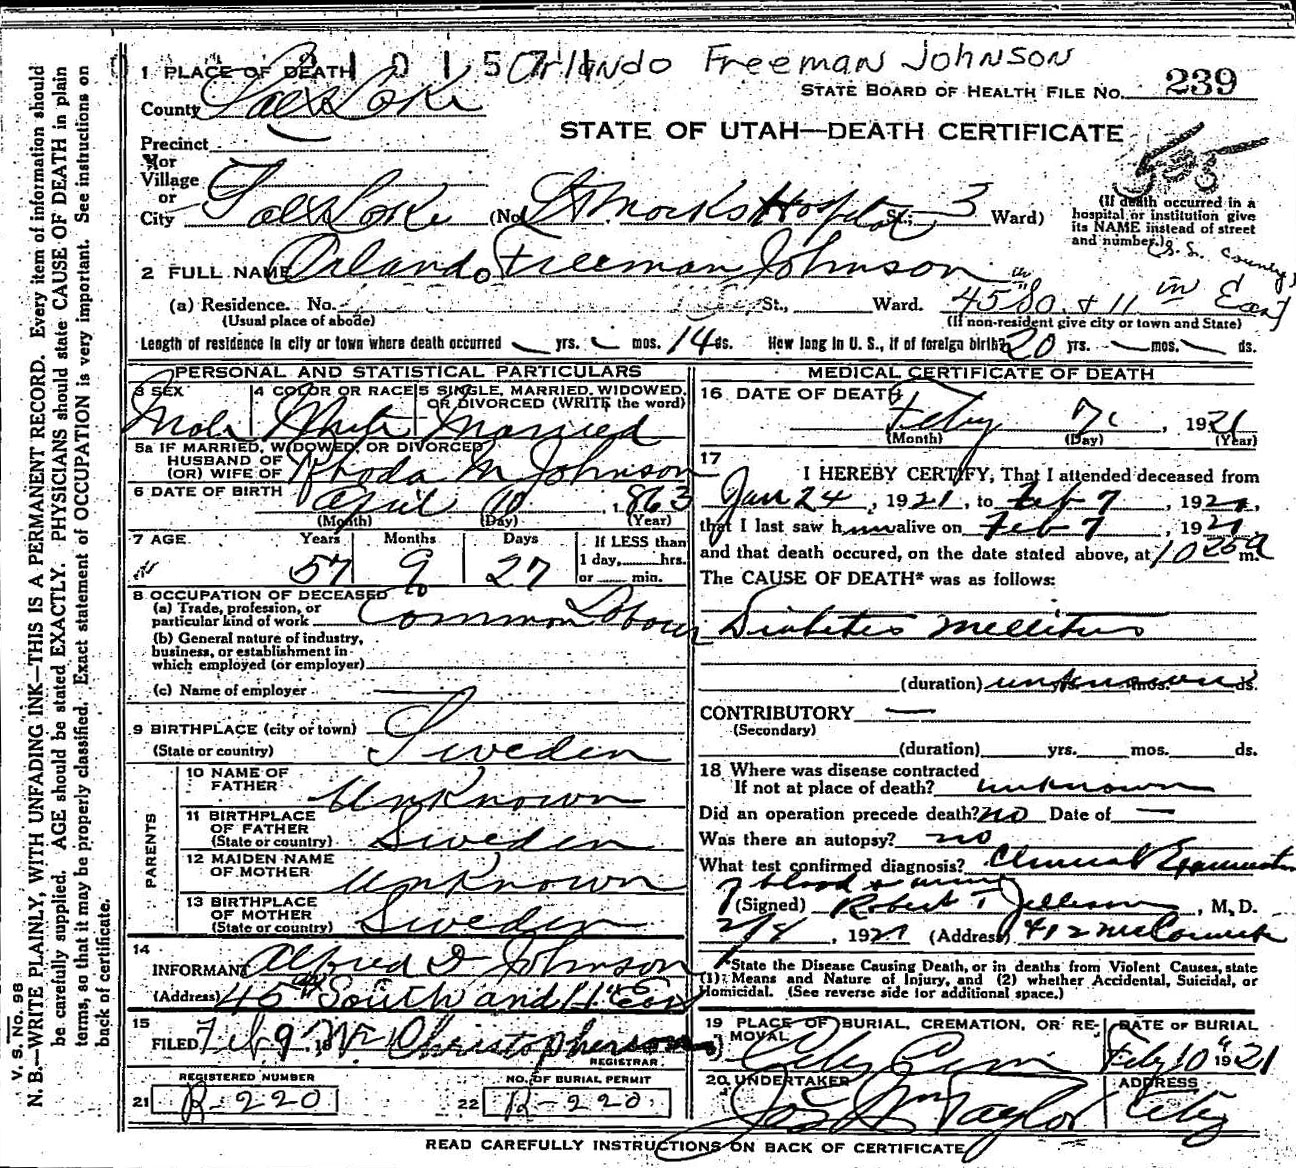 Orlando Freeman Johnson
1 PLACE OF DEATH 1 0 1 5 7
STATE BOARD OF HEALTH FILE NO. 239
County Salt Lake
STATE OF UTAH—DEATH CERTIFICATE
Precinct
or
Village
or
City Salt Lake (No. St Marks Hospital St.; 3 Ward)
(If death occurred in a
hospital or institution give
its NAME instead of street
and number.)
S. L. County
2 FULL NAME Orlando Freeman Johnson
(a) Residence. No. St., Ward. 45 So. & 11 in East
(Usual place of abode) (If non-resident give city or town and State)
Length of residence in city or town where death occurred yrs. mos. 14 ds. How long in U. S., if of foreign birth? 20 yrs. mos. ds.
PERSONAL AND STATISTICAL PARTICULARS
3 SEX 4 COLOR OR RACE 5 SINGLE, MARRIED, WIDOWED,
OR DIVORCED (WRITE the word)
Male White Married
5a IF MARRIED, WIDOWED, OR DIVORCED
HUSBAND OF
(OR) WIFE OF Rhoda M Johnson
6 DATE OF BIRTH April 10 1863
(Month) (Day) (Year)
7 AGE Years Months Days If LESS than
1 day, hrs.
57 9 27 or min.
8 OCCUPATION OF DECEASED
(a) Trade, profession, or
particular kind of work Common Labour
(b) General nature of industry,
business, or establishment in
which employed (or employer)
(c) Name of employer
9 BIRTHPLACE (city or town)
(State or country) Sweden
PARENTS
10 NAME OF
FATHER Unknown
11 BIRTHPLACE
OF FATHER
(State or country) Sweden
12 MAIDEN NAME
OF MOTHER Unknown
13 BIRTHPLACE
OF MOTHER
(State or country) Sweden
14
INFORMANT Alfred D Johnson
(Address) 45th South and 11th East
15
FILED Feb 9 19 Wm Christopherson
REGISTRAR
REGISTERED NUMBER NO. OF BURIAL PERMIT
21 R-220 22 R-220
MEDICAL CERTIFICATE OF DEATH
16 DATE OF DEATH Feby 7, 1921
(Month) (Day) (Year)
17
I HEREBY CERTIFY, That I attended deceased from
Jan 24, 1921, to Feb 7, 1921,
that I last saw him alive on Feb 7, 1921,
and that death occured, on the date stated above, at 10 25 a m.
The CAUSE OF DEATH* was as follows:
Diabetes Mellitus
(duration) unknown yrs. mos. ds.
CONTRIBUTORY —
(Secondary)
(duration) yrs. mos. ds.
18 Where was disease contracted
If not at place of death? unknown
Did an operation precede death? no Date of —
Was there an autopsy? no
What test confirmed diagnosis? Clinical Examination
of blood & urine
(Signed) Robert T Jellison, M. D.
2/8, 1921 (Address) 412 McCornick
*State the Disease Causing Death, or in deaths from Violent Causes, state
(1) Means and Nature of Injury, and (2) whether Accidental, Suicidal, or
Homicidal. (See reverse side for additional space.)
19 PLACE OF BURIAL, CREMATION, OR RE-
MOVAL City Cem
DATE OF BURIAL
Feb 10 1921
20 UNDERTAKER Jos Wm Taylor
ADDRESS City
READ CAREFULLY INSTRUCTIONS ON BACK OF CERTIFICATE
V. S. NO. 98
N. B.—WRITE PLAINLY, WITH UNFADING INK—THIS IS A PERMANENT RECORD. Every item of information should
be carefully supplied. AGE should be stated EXACTLY. PHYSICIANS should state CAUSE OF DEATH in plain
terms, so that it may be properly classified. Exact statement of OCCUPATION is very important. See instructions on
back of certificate.